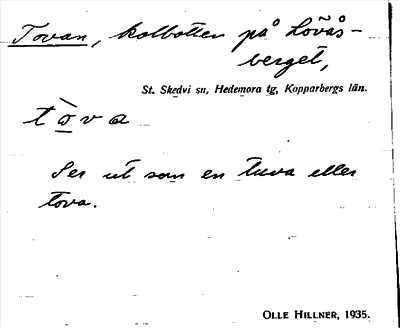 Tovan, kolbotten på Lövås-
berget,
St. Skedvi sn, Hedemora tg, Kopparbergs län.
tòva
Ser ut som en tuva eller
tova.
OLLE HILLNER, 1935.